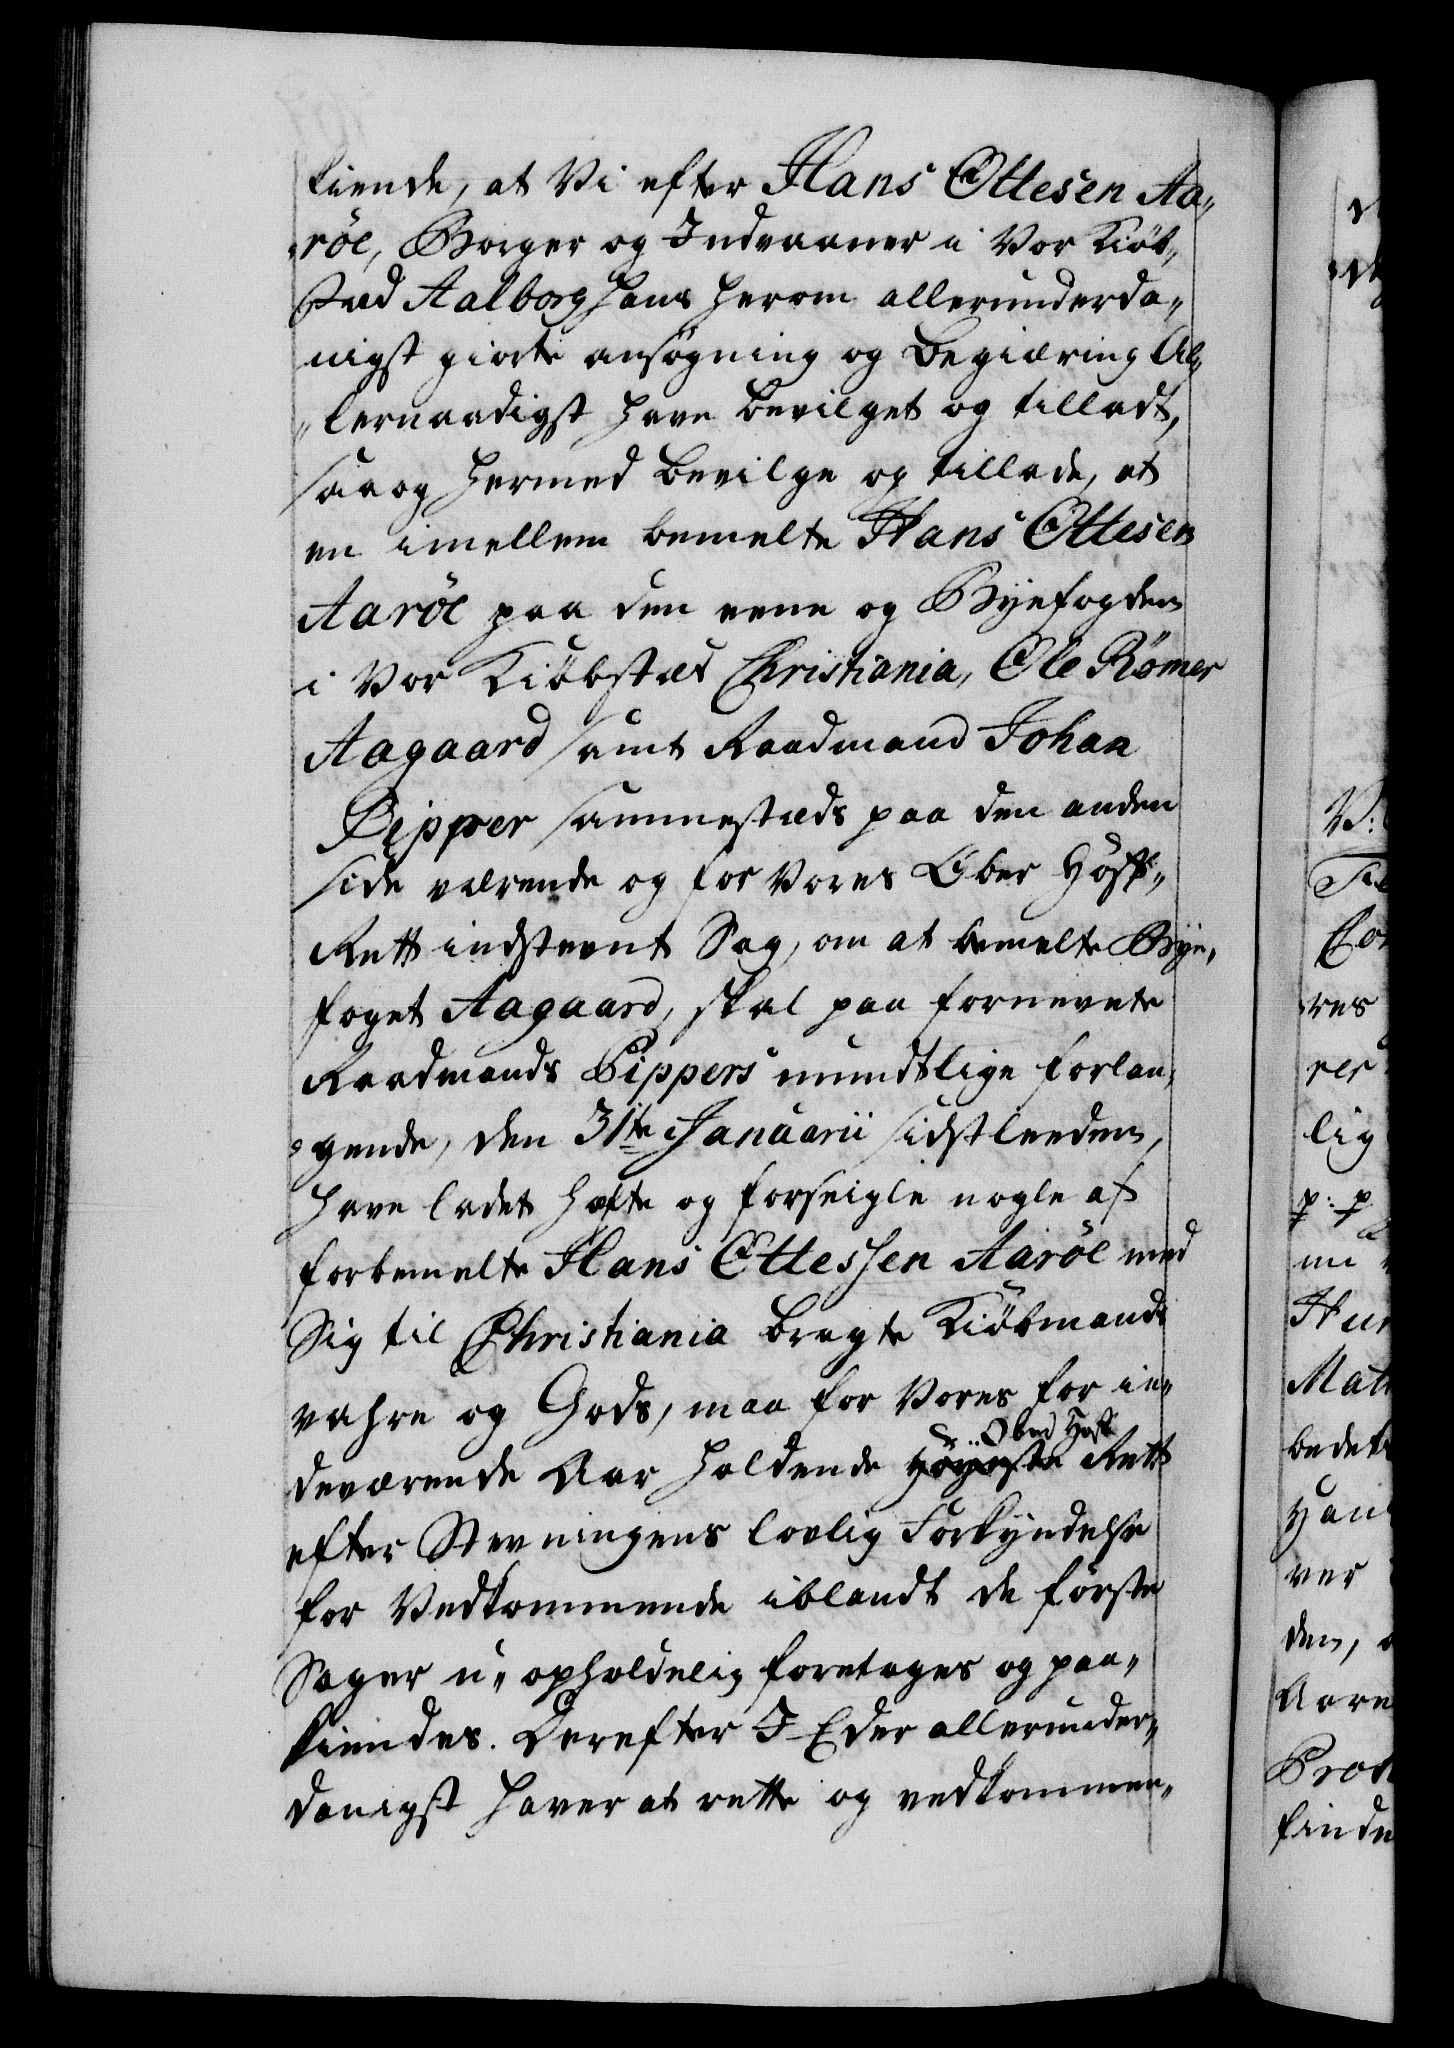 kiende, at Vi efter Hans Ottesen Aa„
„röe, Borger og Indvaaner i Vor Kiöb„
stæd Aalborg hans herom allerunderda„
nigst giorte ansøgning og begiæring Al„
„lernaadigst have bevilget og tilladt,
saa og hermed bevilge og tillade, at
en imellem bemelte Hans Ottesen
Aaröe paa den eene og Byefogden
i Vor Kiöbstæd Christiania, Ole Römer
Aagaard samt Raadmand Johan
Pipper sammestæds paa den anden
side værende og for Vores Ober Hoff„
Rett indstevnt Sag, om at bemelte Bye„
foget Aagaard, skal paa fornevnte
Raadmands Pippers mundtlige forlan„
„gende, den 31te Januarii sidstleeden,
have ladet hæfte og forseigle nogle af
forbemelte Hans Ottessen Aaröe med
Sig til Christiania bragte Kiöbmands
vahre og Gods, maa for Vores for in„
Ober Hoff
deværende Aar holdende Höyeste Rett
efter Stevningens lovlig Forkyndelse
for Vedkommende iblandt de förste
Sager u„opholdelig foretages og paa„
kiendes. Derefter I Eder allerunder„
danigst haver at rette og vedkommen„
V:
res
rer
lig
p: p
Hun
Mat
bedek
ver
den,
Aare
Prov
finde